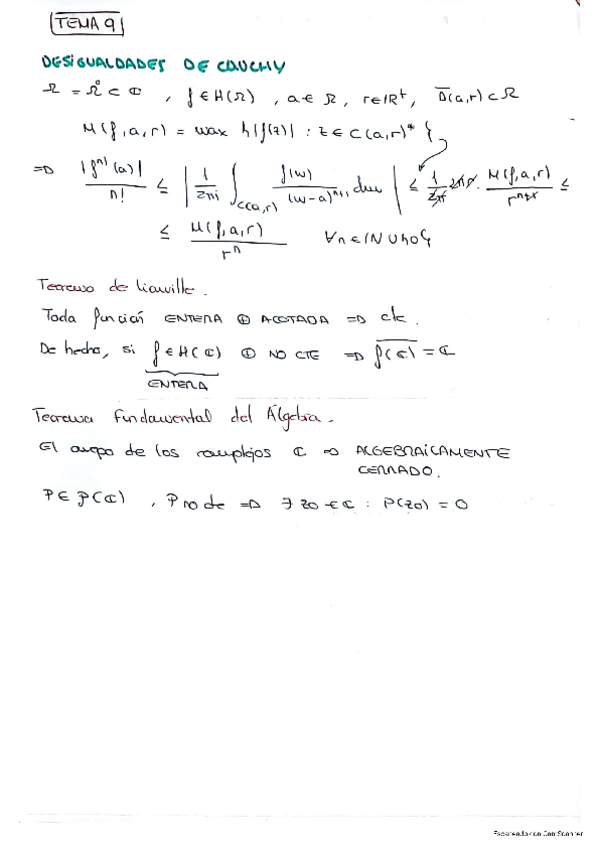 TEMA 9
DESIGUALDADES DE CAUCHY
Ω = Ω° ⊂ ℂ , f ∈ H(Ω) , a ∈ Ω, r ∈ ℝ⁺, D̅(a,r) ⊂ Ω
M(f,a,r) = max { |f(z)| : z ∈ C(a,r)* }
⇒ |fⁿ⁾(a)| / n! ≤ | 1/2πi ∫_C(a,r) f(w)/(w-a)ⁿ⁺¹ dw | ≤ 1/2π 2πr · M(f,a,r)/rⁿ⁺¹ ≤
≤ M(f,a,r)/rⁿ ∀n ∈ ℕ ∪ {0}
Teorema de Liouville.
Toda función ENTERA ⊕ ACOTADA ⇒ cte.
De hecho, si f ∈ H(ℂ) ⊕ NO CTE ⇒ \overline{f(ℂ)} = ℂ
ENTERA
Teorema Fundamental del Álgebra.
El cuerpo de los complejos ℂ ⇒ ALGEBRAICAMENTE
CERRADO.
P ∈ P(ℂ) , P no cte ⇒ ∃ z0 ∈ ℂ : P(z0) = 0
Escaneado con CamScanner